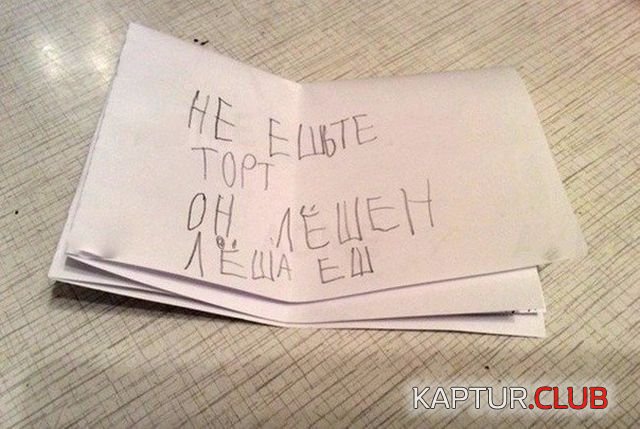 НЕ ЕШЬТЕ
ТОРТ
ОН ЛЁШЕН
ЛЁША ЕШ
KAPTUR.CLUB